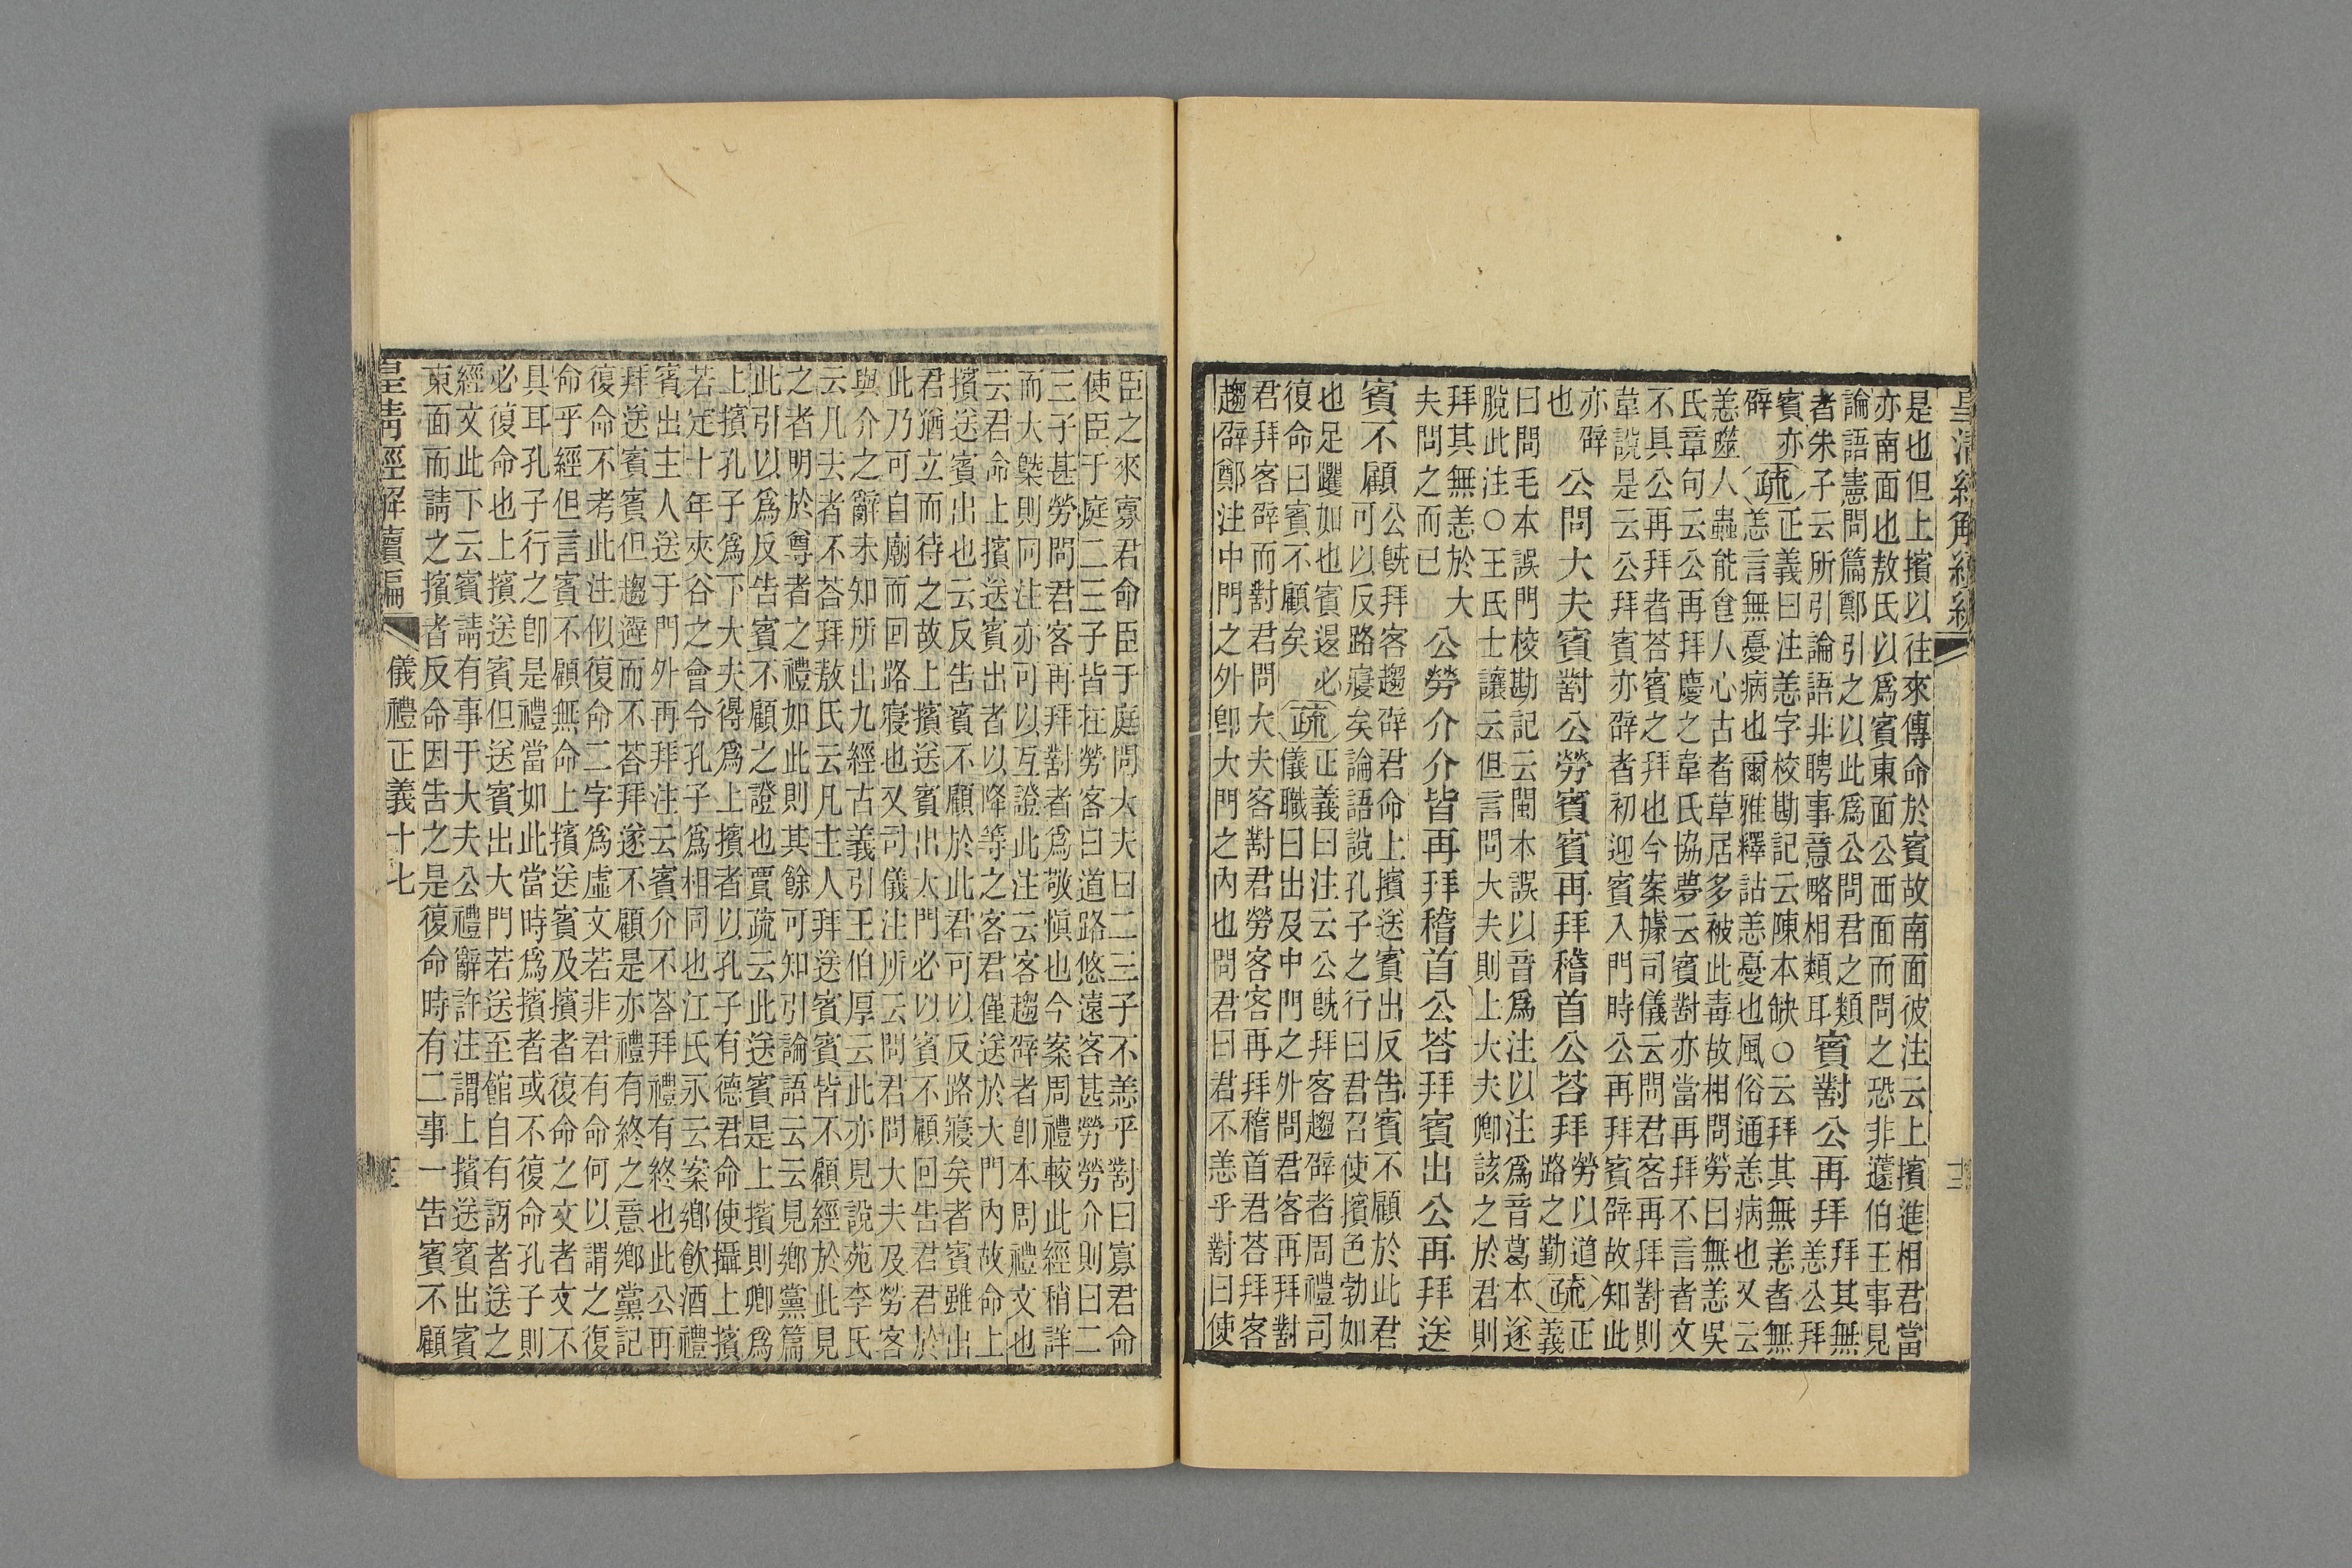 皇清經解續編
是也但上擯以往來傳命於賓故南面彼注云上擯進相君當
亦南面也敖氏以爲賓東面公西面而問之恐非蘧伯王事見
論語憲問篇鄭引之以此爲公問君之類
者朱子云所引論語非聘事意略相類耳
賓對公再拜
拜其無
恙公拜
賓亦
辟
疏
正義曰注恙字校勘記云陳本缺○云拜其無恙者無
恙言無憂病也爾雅釋詁恙憂也風俗通恙病也又云
恙噬人蟲能食人心古者草居多被此毒故相問勞曰無恙吳
氏章句云公再拜慶之韋氏協夢云賓對亦當再拜不言者文
不具公再拜者荅賓之拜也今案據司儀云問君客再拜對則
韋說是云公拜賓亦辟者初迎賓入門時公再拜賓辟故知此
亦辟
也
公問大夫賓對公勞賓賓再拜稽首公荅拜
勞以道
路之勤
疏
正
義
曰問毛本誤門校勘記云閩本誤以音爲注以注爲音葛本遂
脫此注○王氏士讓云但言問大夫則上大夫卿該之於君則
拜其無恙於大
夫問之而已
公勞介介皆再拜稽首公荅拜賓出公再拜送
賓不顧
公旣拜客趨辟君命上擯送賓出反告賓不顧於此君
可以反路寢矣論語說孔子之行曰君召使擯色勃如
也足躩如也賓退必
復命曰賓不顧矣
疏
正義曰注云公旣拜客趨辟者周禮司
儀職曰出及中門之外問君客再拜對
君拜客辟而對君問大夫客對君勞客客再拜稽首君荅拜客
趨辟鄭注中門之外卽大門之內也問君曰君不恙乎對曰使
臣之來寡君命臣于庭問大夫曰二三子不恙乎對曰寡君命
使臣于庭二三子皆在勞客曰道路悠遠客甚勞勞介則曰二
三子甚勞問君客再拜對者爲敬愼也今案周禮較此經稍詳
而大槩則同注亦可以互證此注云客趨辟者卽本周禮文也
云君命上擯送賓出者以降等之客君僅送於大門內故命上
擯送賓出也云反告賓不顧於此君可以反路寢矣者賓雖出
君猶立而待之故上擯送賓出大門必以賓不顧回告君君於
此乃可自廟而回路寢也又司儀注所云問君問大夫及勞客
與介之辭未知所出九經古義引王伯厚云此亦見說苑李氏
云凡去者不荅拜敖氏云凡主人拜送賓賓皆不顧經於此見
之者明於尊者之禮如此則其餘可知引論語云云見鄕黨篇
此引以爲反告賓不顧之證也賈疏云此送賓是上擯則卿爲
上擯孔子爲下大夫得爲上擯者以孔子有德君命使攝上擯
若定十年夾谷之會令孔子爲相同也江氏永云案鄕飮酒禮
賓出主人送于門外再拜注云賓介不荅拜禮有終也此公再
拜送賓賓但趨避而不荅拜遂不顧是亦禮有終之意鄕黨記
復命不考此注似復命二字爲虛文若非君有命何以謂之復
命乎經但言賓不顧無命上擯送賓及擯者復命之文者文不
具耳孔子行之卽是禮當如此當時爲擯者或不復命孔子則
必復命也上擯送賓但送賓出大門若送至館自有訝者送之
經文此下云賓請有事于大夫公禮辭許注謂上擯送賓出賓
東面而請之擯者反命因告之是復命時有二事一告賓不顧
皇清經解續編
儀禮正義十七